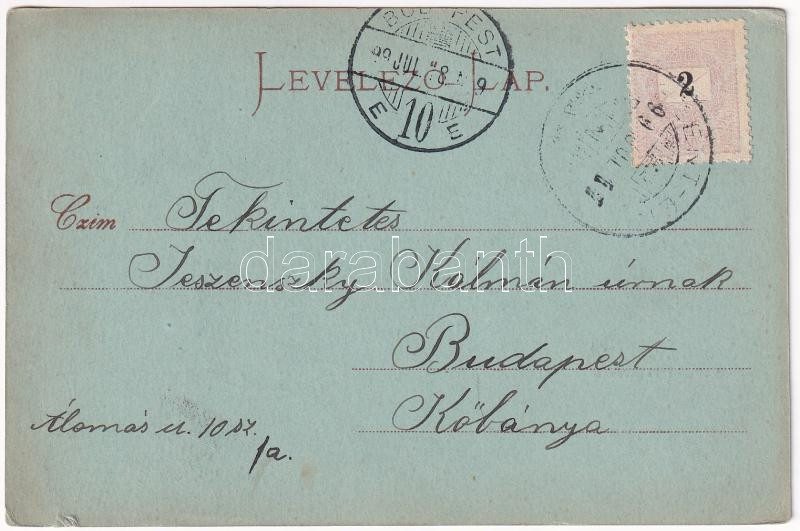 LEVELEZŐ-LAP.
BUDAPEST
99 JUL
10
E E
2
Czím Tekintetes
Jeszenszky Kálmán úrnak
Budapest
Kőbánya
Álomás u. 10 sz.
/a.
darabanth